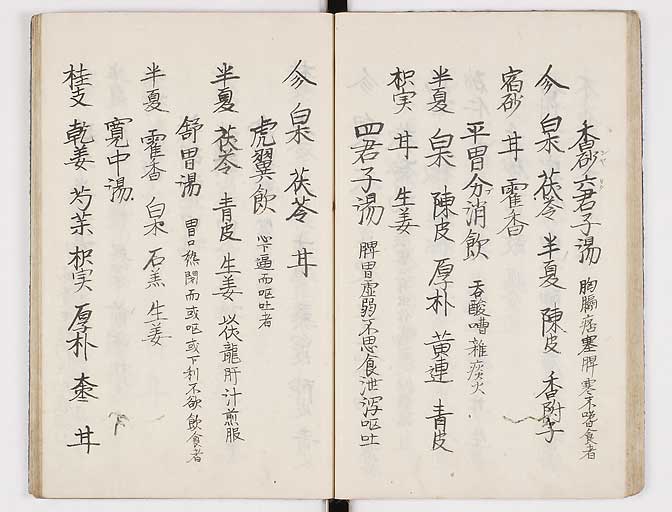 香砂六君子湯 胸膈痞塞脾寒不嗜食者
人参 白朮 茯苓 半夏 陳皮 香附子
宿砂 甘 藿香
平胃分消飲 呑酸嘈雑痰火
半夏 白朮 陳皮 厚朴 黄連 青皮
枳実 甘 生姜
四君子湯 脾胃虚弱不思食泄瀉呕吐
参 白朮 茯苓 甘
虎翼飲 心下逼而呕吐者
半夏 茯苓 青皮 生姜 伏龍肝汁煎服
舒胃湯 胃口 閉而或呕或下利不欲飲食者
半夏 霍香 白朮 石羔 生姜
寛中湯
桂支 乾姜 芍薬 枳実 厚朴 棗 甘